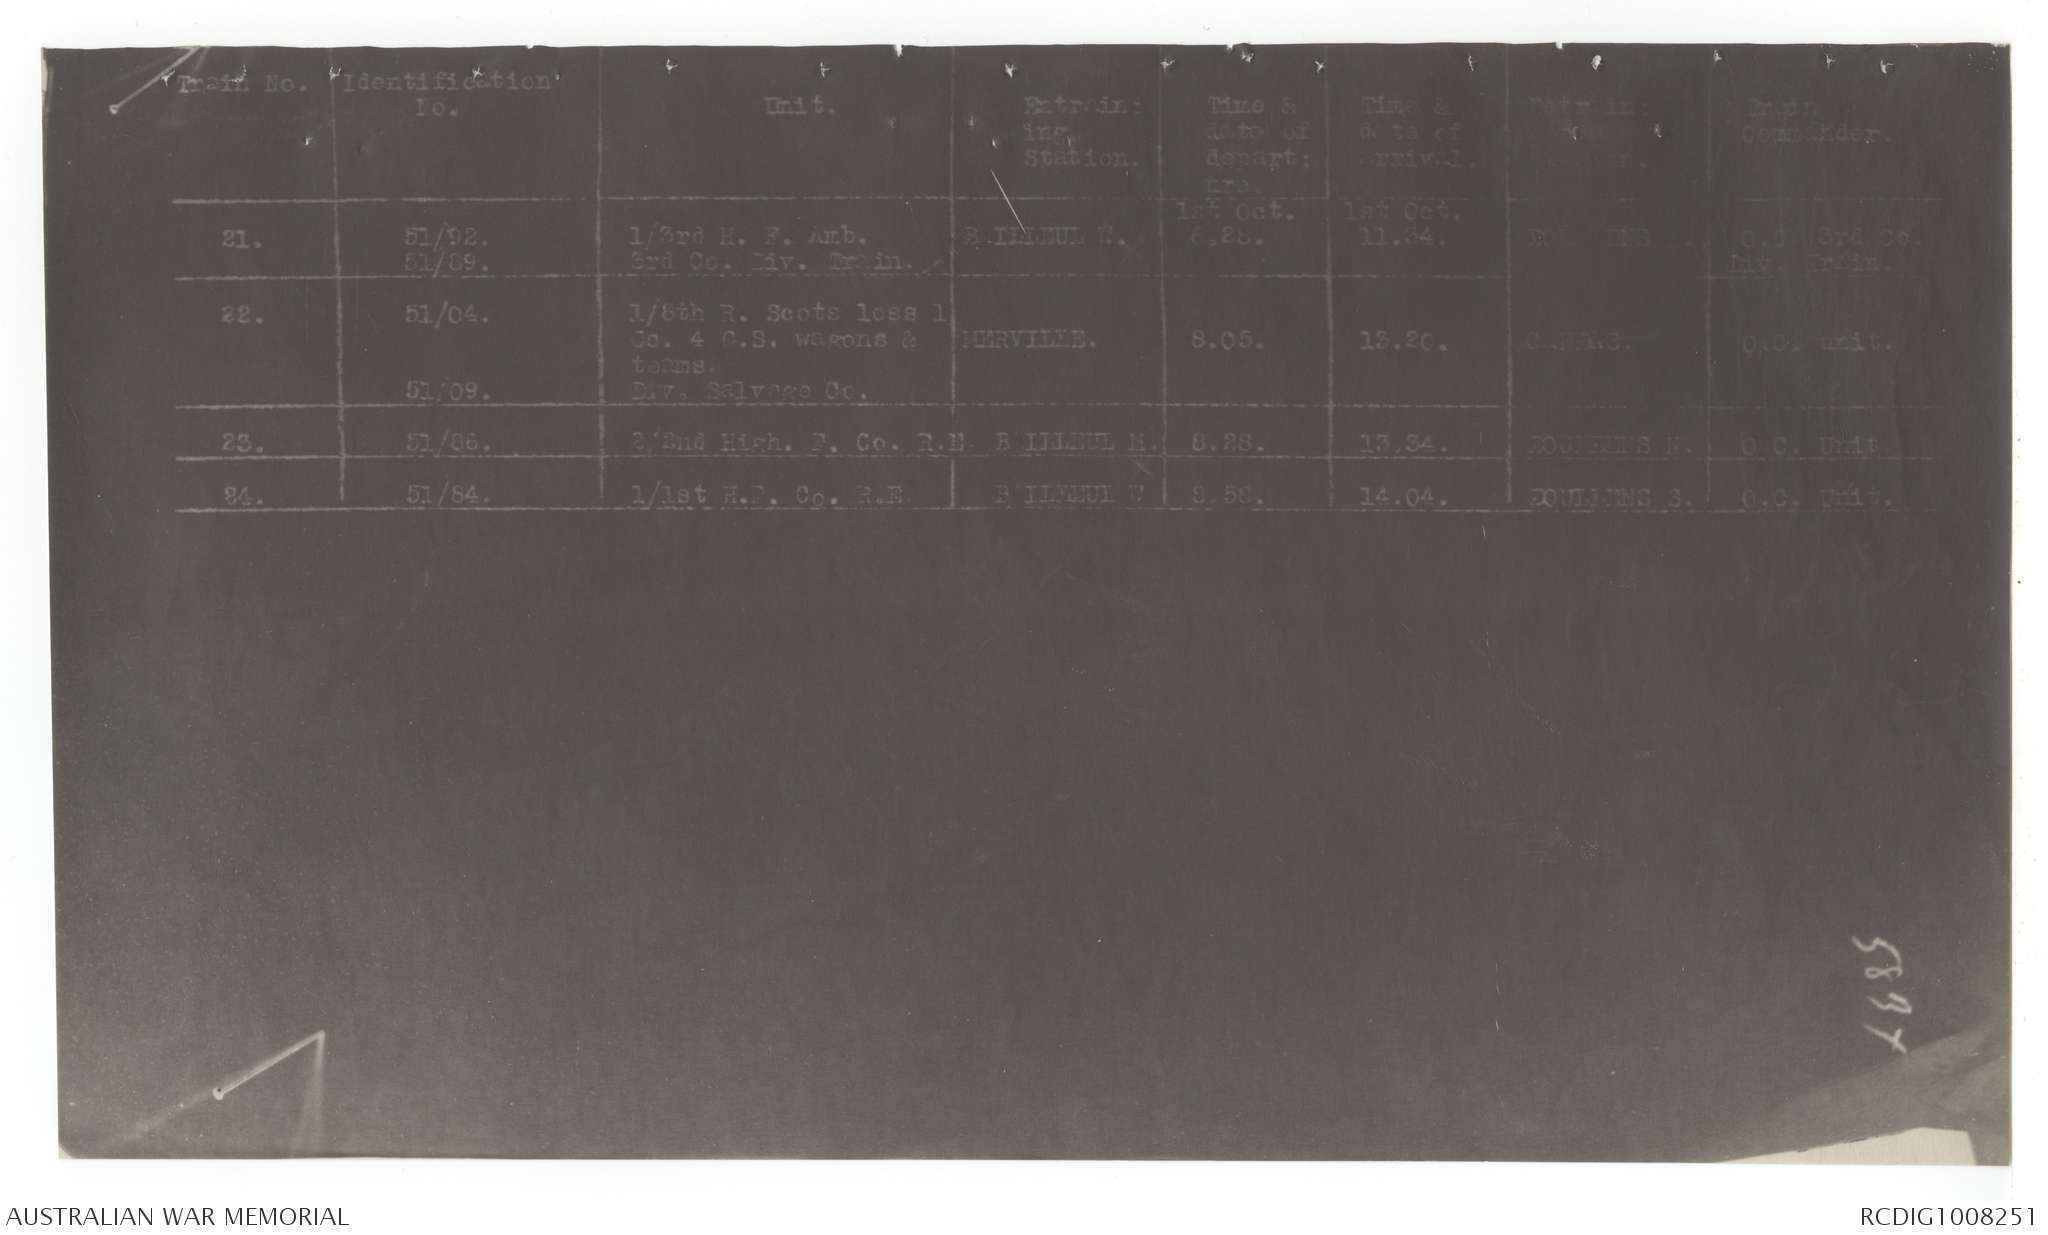 Train No. Identification No. Unit. Entrain: ing Station. Time & date of depart: ure. Time & date of arrival. Train Commander.
1st Oct. 1st Oct.
21. 51/92. 1/3rd H. F. Amb. BAILLEUL W. 6.28. 11.34. 3rd Co.
51/89. 3rd Co. Div. Train. Div. Train.
22. 51/04. 1/8th R. Scots less 1
Co. 4 G.S. wagons & MERVILLE. 8.05. 13.20. O.C. Unit.
teams.
51/09. Div. Salvage Co.
23. 51/86. 2/2nd High. F. Co. R.E. BAILLEUL M. 8.28. 13.34. DOULLENS N. O.C. Unit
24. 51/84. 1/1st H.F. Co. R.E. BAILLEUL W 8.58. 14.04. DOULLENS S. O.C. Unit.
AUSTRALIAN WAR MEMORIAL
RCDIG1008251